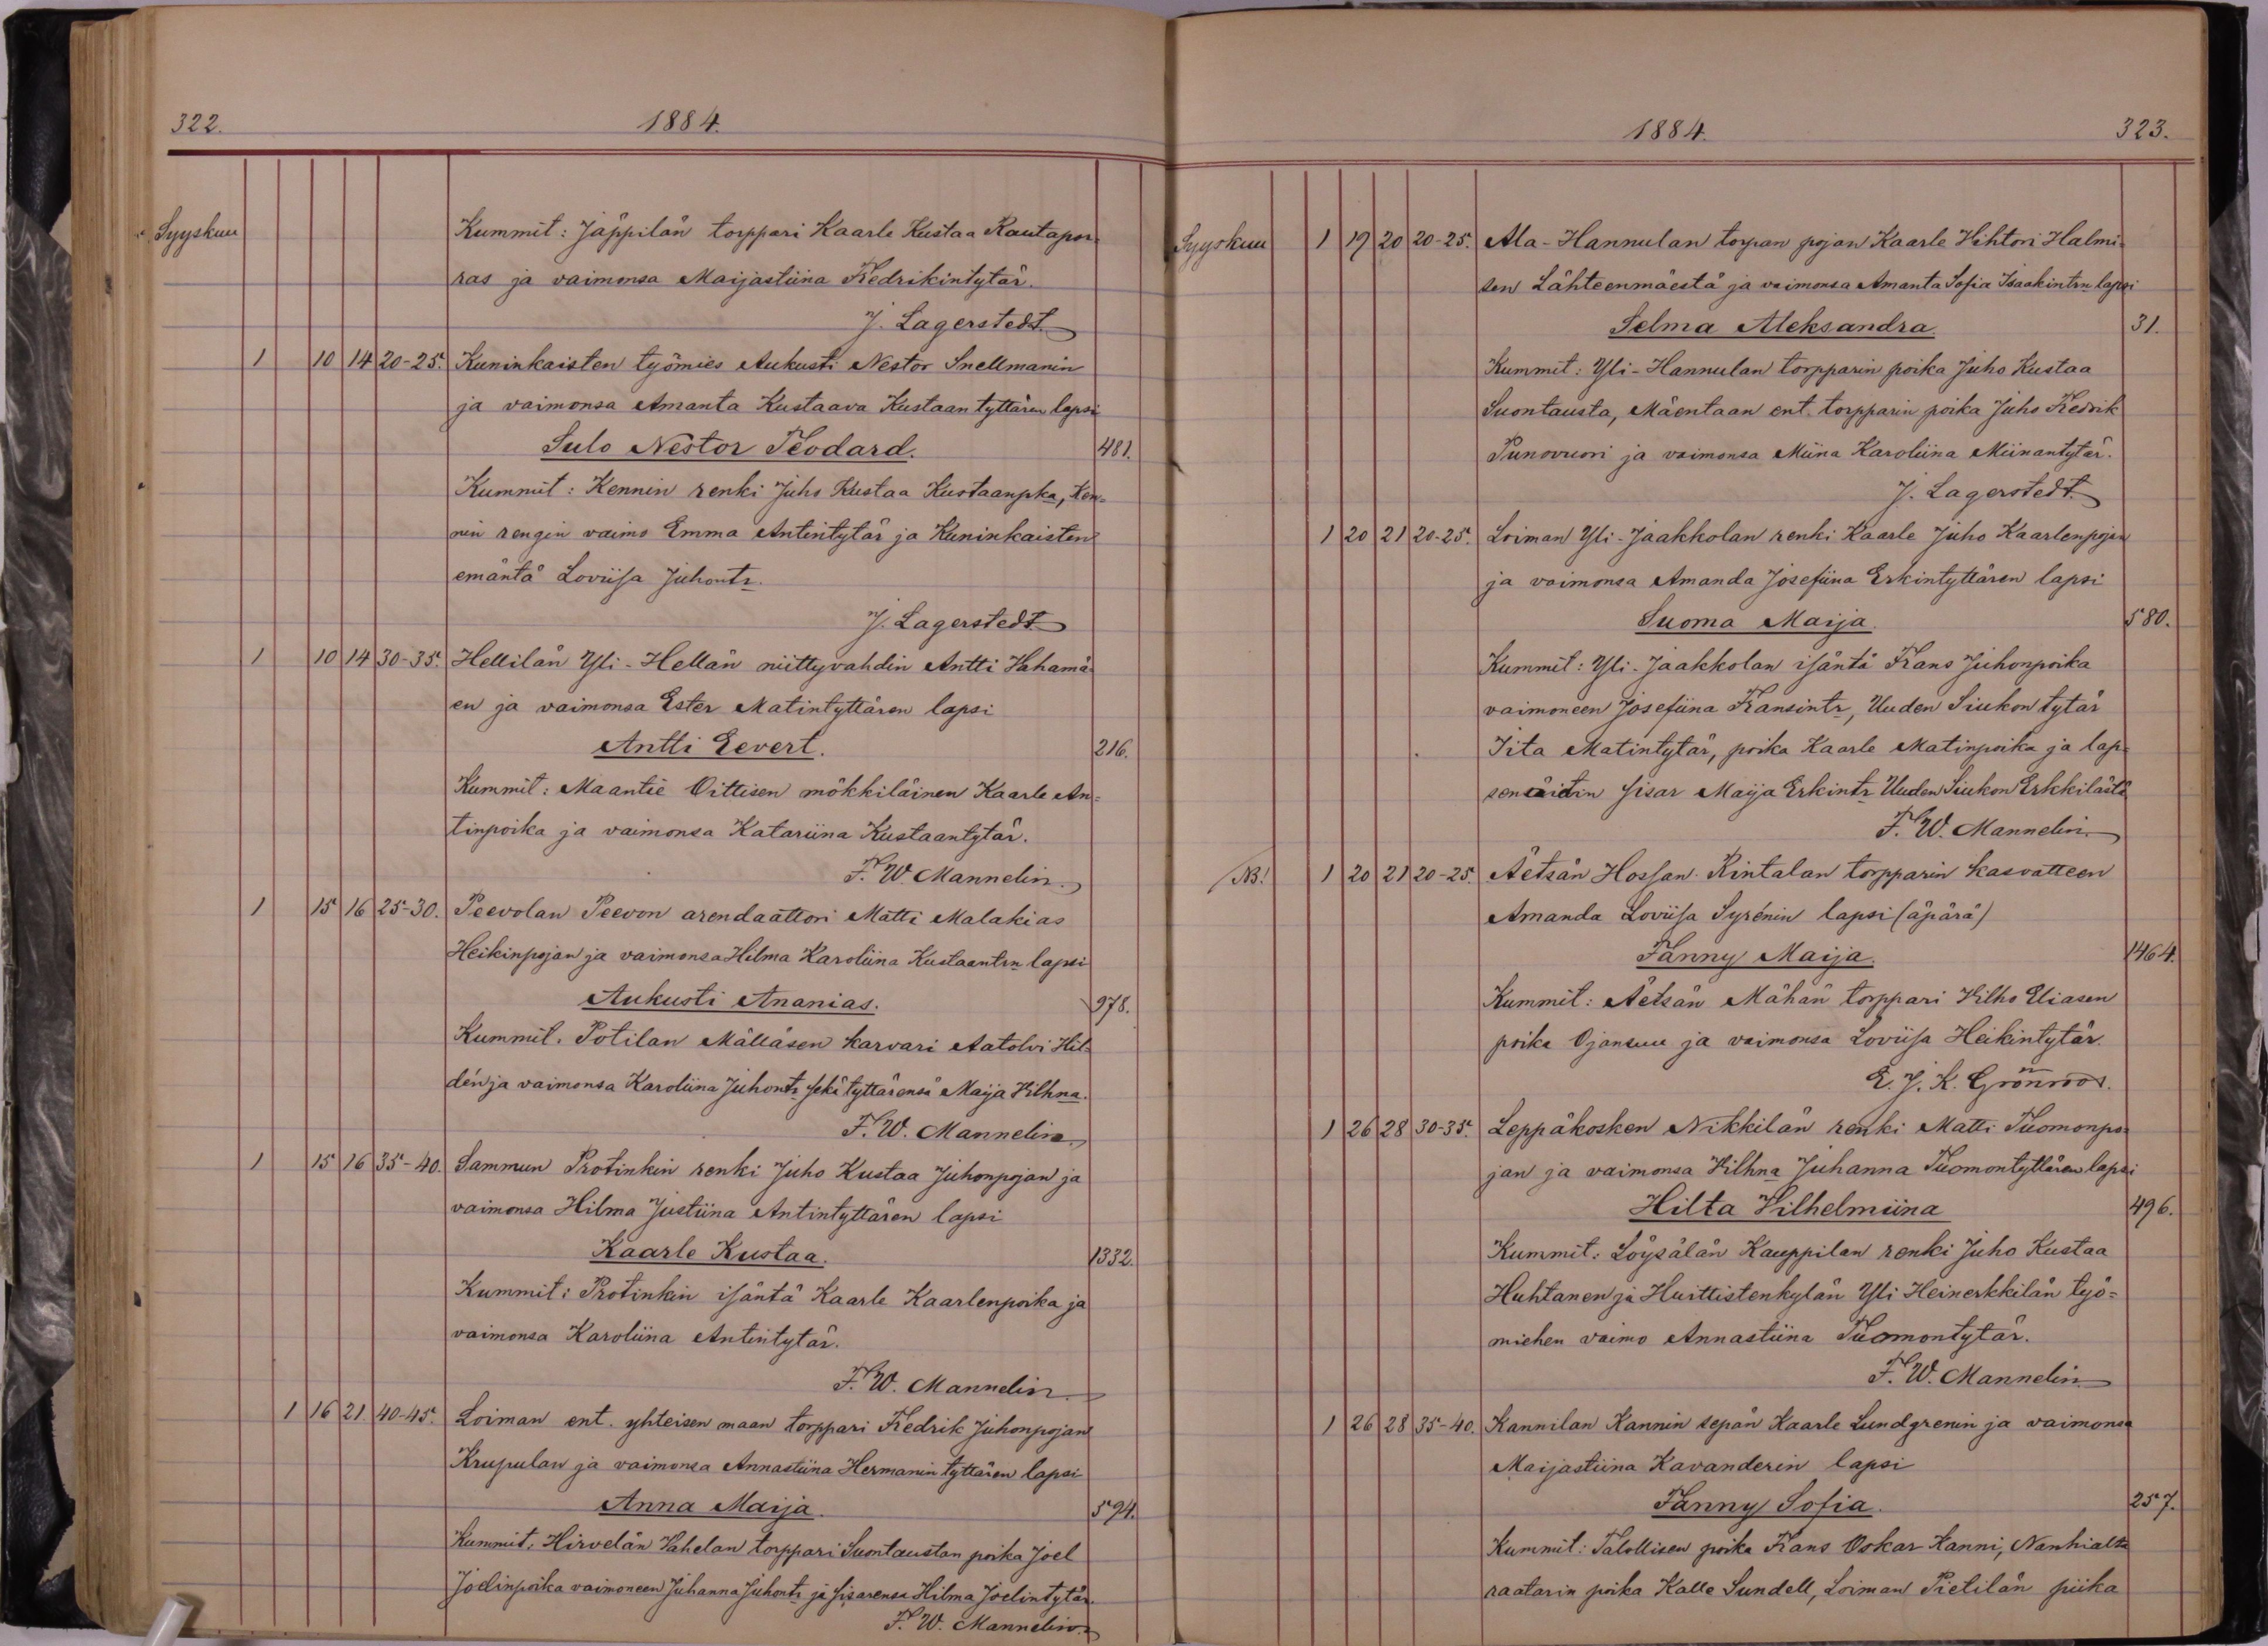 322.
1884.
Syyskuu
Kummit: Jäppilän torppari Kaarle Kustaa Rautapor-
ras ja vaimonsa Maijastiina Fredrikintytär.
J. Lagerstedt
1 10 14 20-25. Kuninkaisten työmies Aukusti Nestor Snellmanin
ja vaimonsa Amanta Kustaava Kustaantyttären lapsi
Sulo Nestor Teodard. 481.
Kummit: Kennin renki Juho Kustaa Kustaanpka, Ken=
nin rengin vaimo Emma Antintytär ja Kuninkaisten
emäntä Loviisa Juhontr.
J. Lagerstedt
1 10 14 30-35. Hellilän Yli-Hellän niittyvahdin Antti Vahamä-
en ja vaimonsa Ester Matintyttären lapsi
Antti Eevert. 216.
Kummit: Maantie Oittisen mökkiläinen Kaarle An=
tinpoika ja vaimonsa Katariina Kustaantytär.
F. W. Mannelin.
1 15 16 25-30. Peevolan Peevon arendaattori Matti Malakias
Heikinpojan ja vaimonsa Hilma Karoliina Kustaantrn lapsi
Aukusti Ananias. 978.
Kummit. Potilan Mälläsen karvari Aatolvi Hil-
dén ja vaimonsa Karoliina Juhontr sekä tyttärensä Maija Vilhna.
F. W. Mannelin
1 15 16 35-40. Sammun Protinkin renki Juho Kustaa Juhonpojan ja
vaimonsa Hilma Justiina Antintyttären lapsi
Kaarle Kustaa. 1332.
Kummit: Protinkin isäntä Kaarle Kaarlenpoika ja
vaimonsa Karoliina Antintytär.
F. W. Mannelin
1 16 21 40-45. Loiman ent. yhteisen maan torppari Fredrik Juhonpojan
Krupulan ja vaimonsa Annastiina Hermanintyttären lapsi
Anna Maija. 594.
Kummit. Hirvelän Vahelan torppari Suontaustan poika Joel
Joelinpoika vaimoneen Juhanna Juhontr ja sisarensa Hilma Joelintytär.
F. W. Mannelin.
1884.
323.
Syyskuu 1 19 20 20-25. Ala-Hannulan torpan pojan Kaarle Vihtori Halmi=
sen Lähteenmäestä ja vaimonsa Amanta Sofia Isaakintrn lapsi
Selma Aleksandra. 31.
Kummit: Yli-Hannulan torpparin poika Juho Kustaa
Suontausta, Mäentaan ent. torpparin poika Juho Fredrik
Punovuori ja vaimonsa Miina Karoliina Miinantytär.
J. Lagerstedt
1 20 21 20-25. Loiman Yli-Jaakkolan renki Kaarle Juho Kaarlenpojan
ja vaimonsa Amanda Josefiina Erkintyttären lapsi
Suoma Maija. 580.
Kummit: Yli-Jaakkolan isäntä Frans Juhonpoika
vaimoneen Josefiina Fransintr, Uuden Siukon tytär
Iita Matintytär, poika Kaarle Matinpoika ja lap=
senäidin sisar Maija Erkintr Uuden Siukon Erkkilästä
F. W. Mannelin.
NB! 1 20 21 20-25. Äetsän Hossan Rintalan torpparin kasvatteen
Amanda Loviisa Syrénin lapsi (äpärä)
Fanny Maija. 1464.
Kummit: Äetsän Mähän torppari Vilho Eliasen
poika Ojansuu ja vaimonsa Loviisa Heikintytär.
E. J. K. Grönroos.
1 26 28 30-35. Leppäkosken Nikkilän renki Matti Tuomonpo=
jan ja vaimonsa Vilhna Juhanna Tuomontyttären lapsi
Hilta Vilhelmiina 496.
Kummit: Löysälän Kauppilan renki Juho Kustaa
Huhtanen ja Huittistenkylän Yli Heinerkkilän työ=
miehen vaimo Annastiina Tuomontytär.
F. W. Mannelin
1 26 28 35-40. Kannilan Kannin sepän Kaarle Lundgrenin ja vaimonsa
Maijastiina Kavanderin lapsi
Fanny Sofia. 257.
Kummit: Talollisen poika Frans Oskar Kanni, Nanhialta
raatarin poika Kalle Sundell, Loiman Pietilän piika